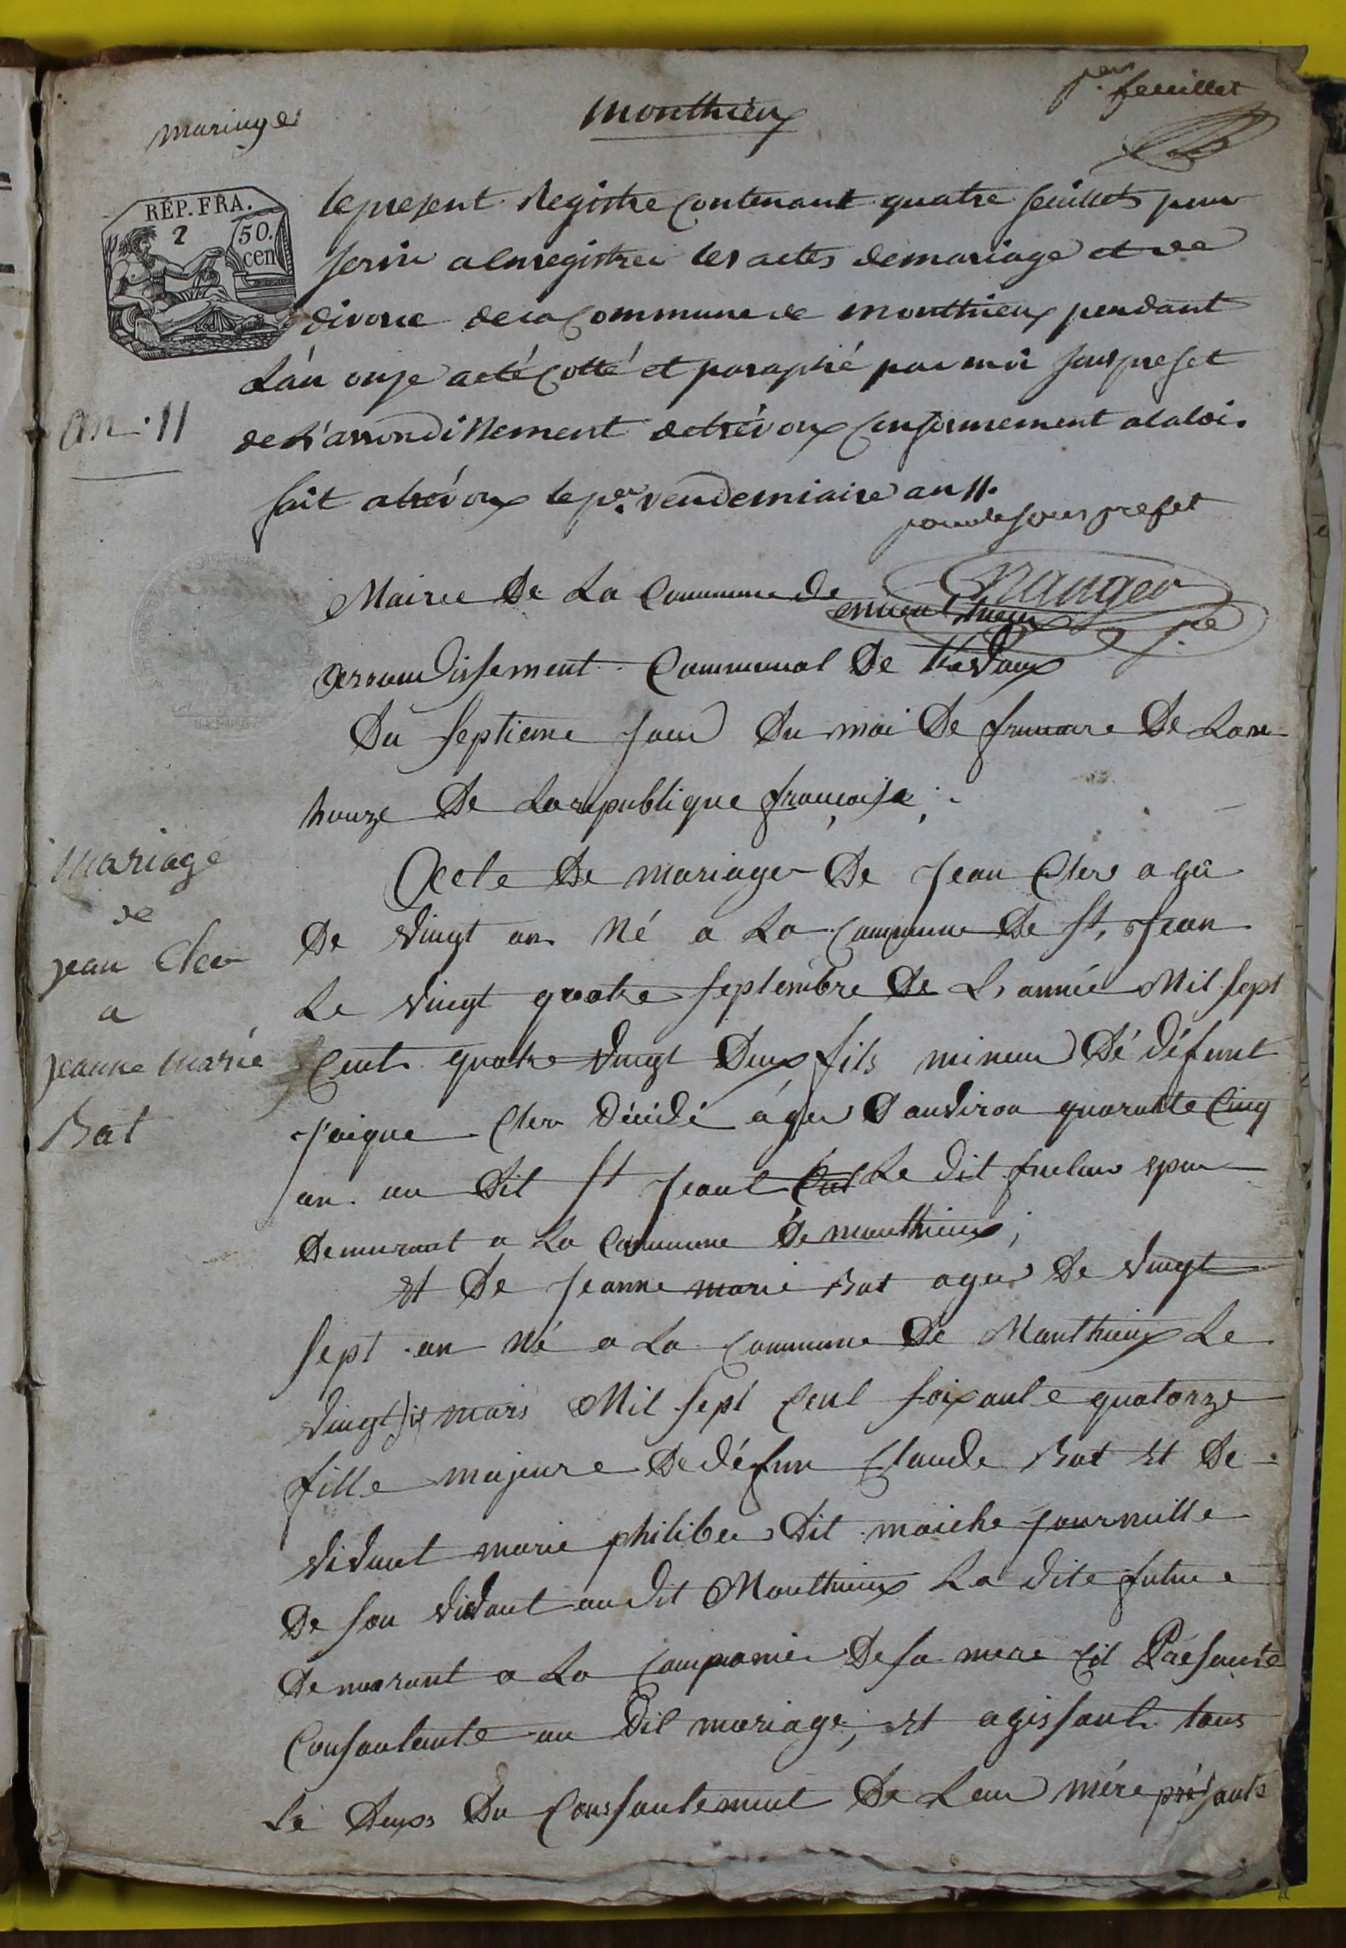 mariages
Monthieux
per. feuillet
REP. FRA.
2
50.
cen
le present Registre contenant quatre feuillets pour
servir a Enregistrer les actes de mariage et de
divorce de la Commune de monthieux pendant
L'an onze a eté Cotté et paraphé par moi sous prefet
de L'arrondissement de trévoux Conformement a la loi.
fait a trévoux le per. vendemiaire an 11.
an. 11
pour le sous prefet
Mairee De La Commune de
arrondissement Communal De trevoux
Du Septieme jour Du moi De frimaire De Lan
houze De La republique françoise ;
mariage
de
jean Cler
a
jeanne marie
Bat
Acte De mariage De Jean Cler agé
De vingt an Né a La Commune De St. Jean
Le vingt quatre septembre De L année Mil sept
Cent quatre vingt Deux fils mineur Dé défunt
Jaique Cler décédé áger D anviron quarante Cinq
an au Dit St Jean Le dit futur epou
Demeurant a La Commune De monthieux ;
et De Jeanne marie Bat ager De vingt
sept an Né a La Commune De Monthieux Le
vingt six mars Mil sept Cent soixante quatorze
fille majeure De défun Claude Bat Et De
vivant marie philiber Dit
De son vivant audit Monthieux La dite future
Demeurant a La Compagnie De sa mere Présante
Consantante au Dit mariage ; et agissant tous
Le Deux Du Consantement De Leur mére présante